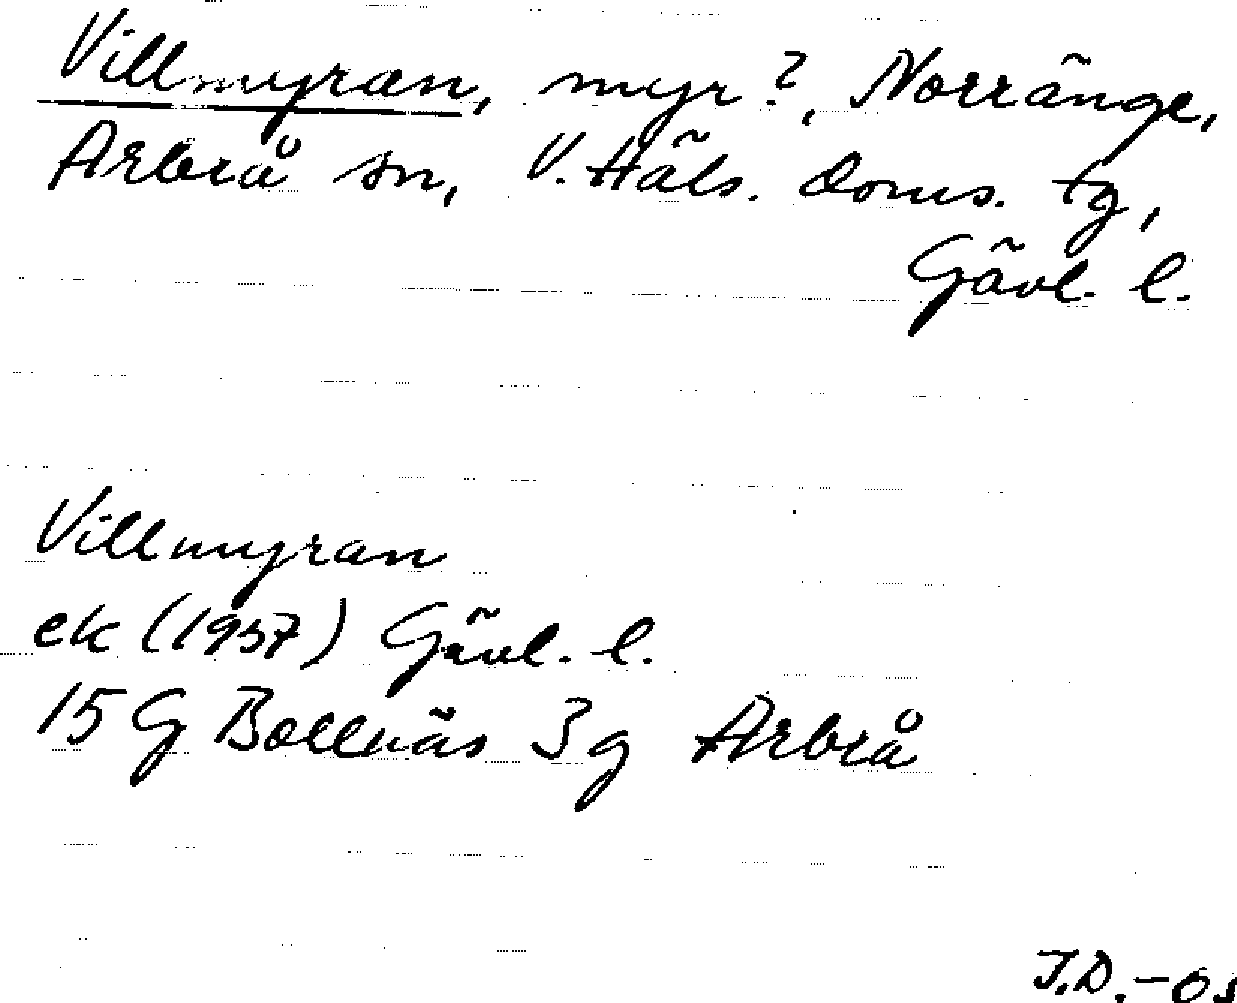 Villmyran, myr?, Norränge,
Arbrå sn, V. Häls. doms. tg,
Gävl. l.
Villmyran
ek (1957) Gävl. l.
15 G Bollnäs 3 g Arbrå
J.D. -